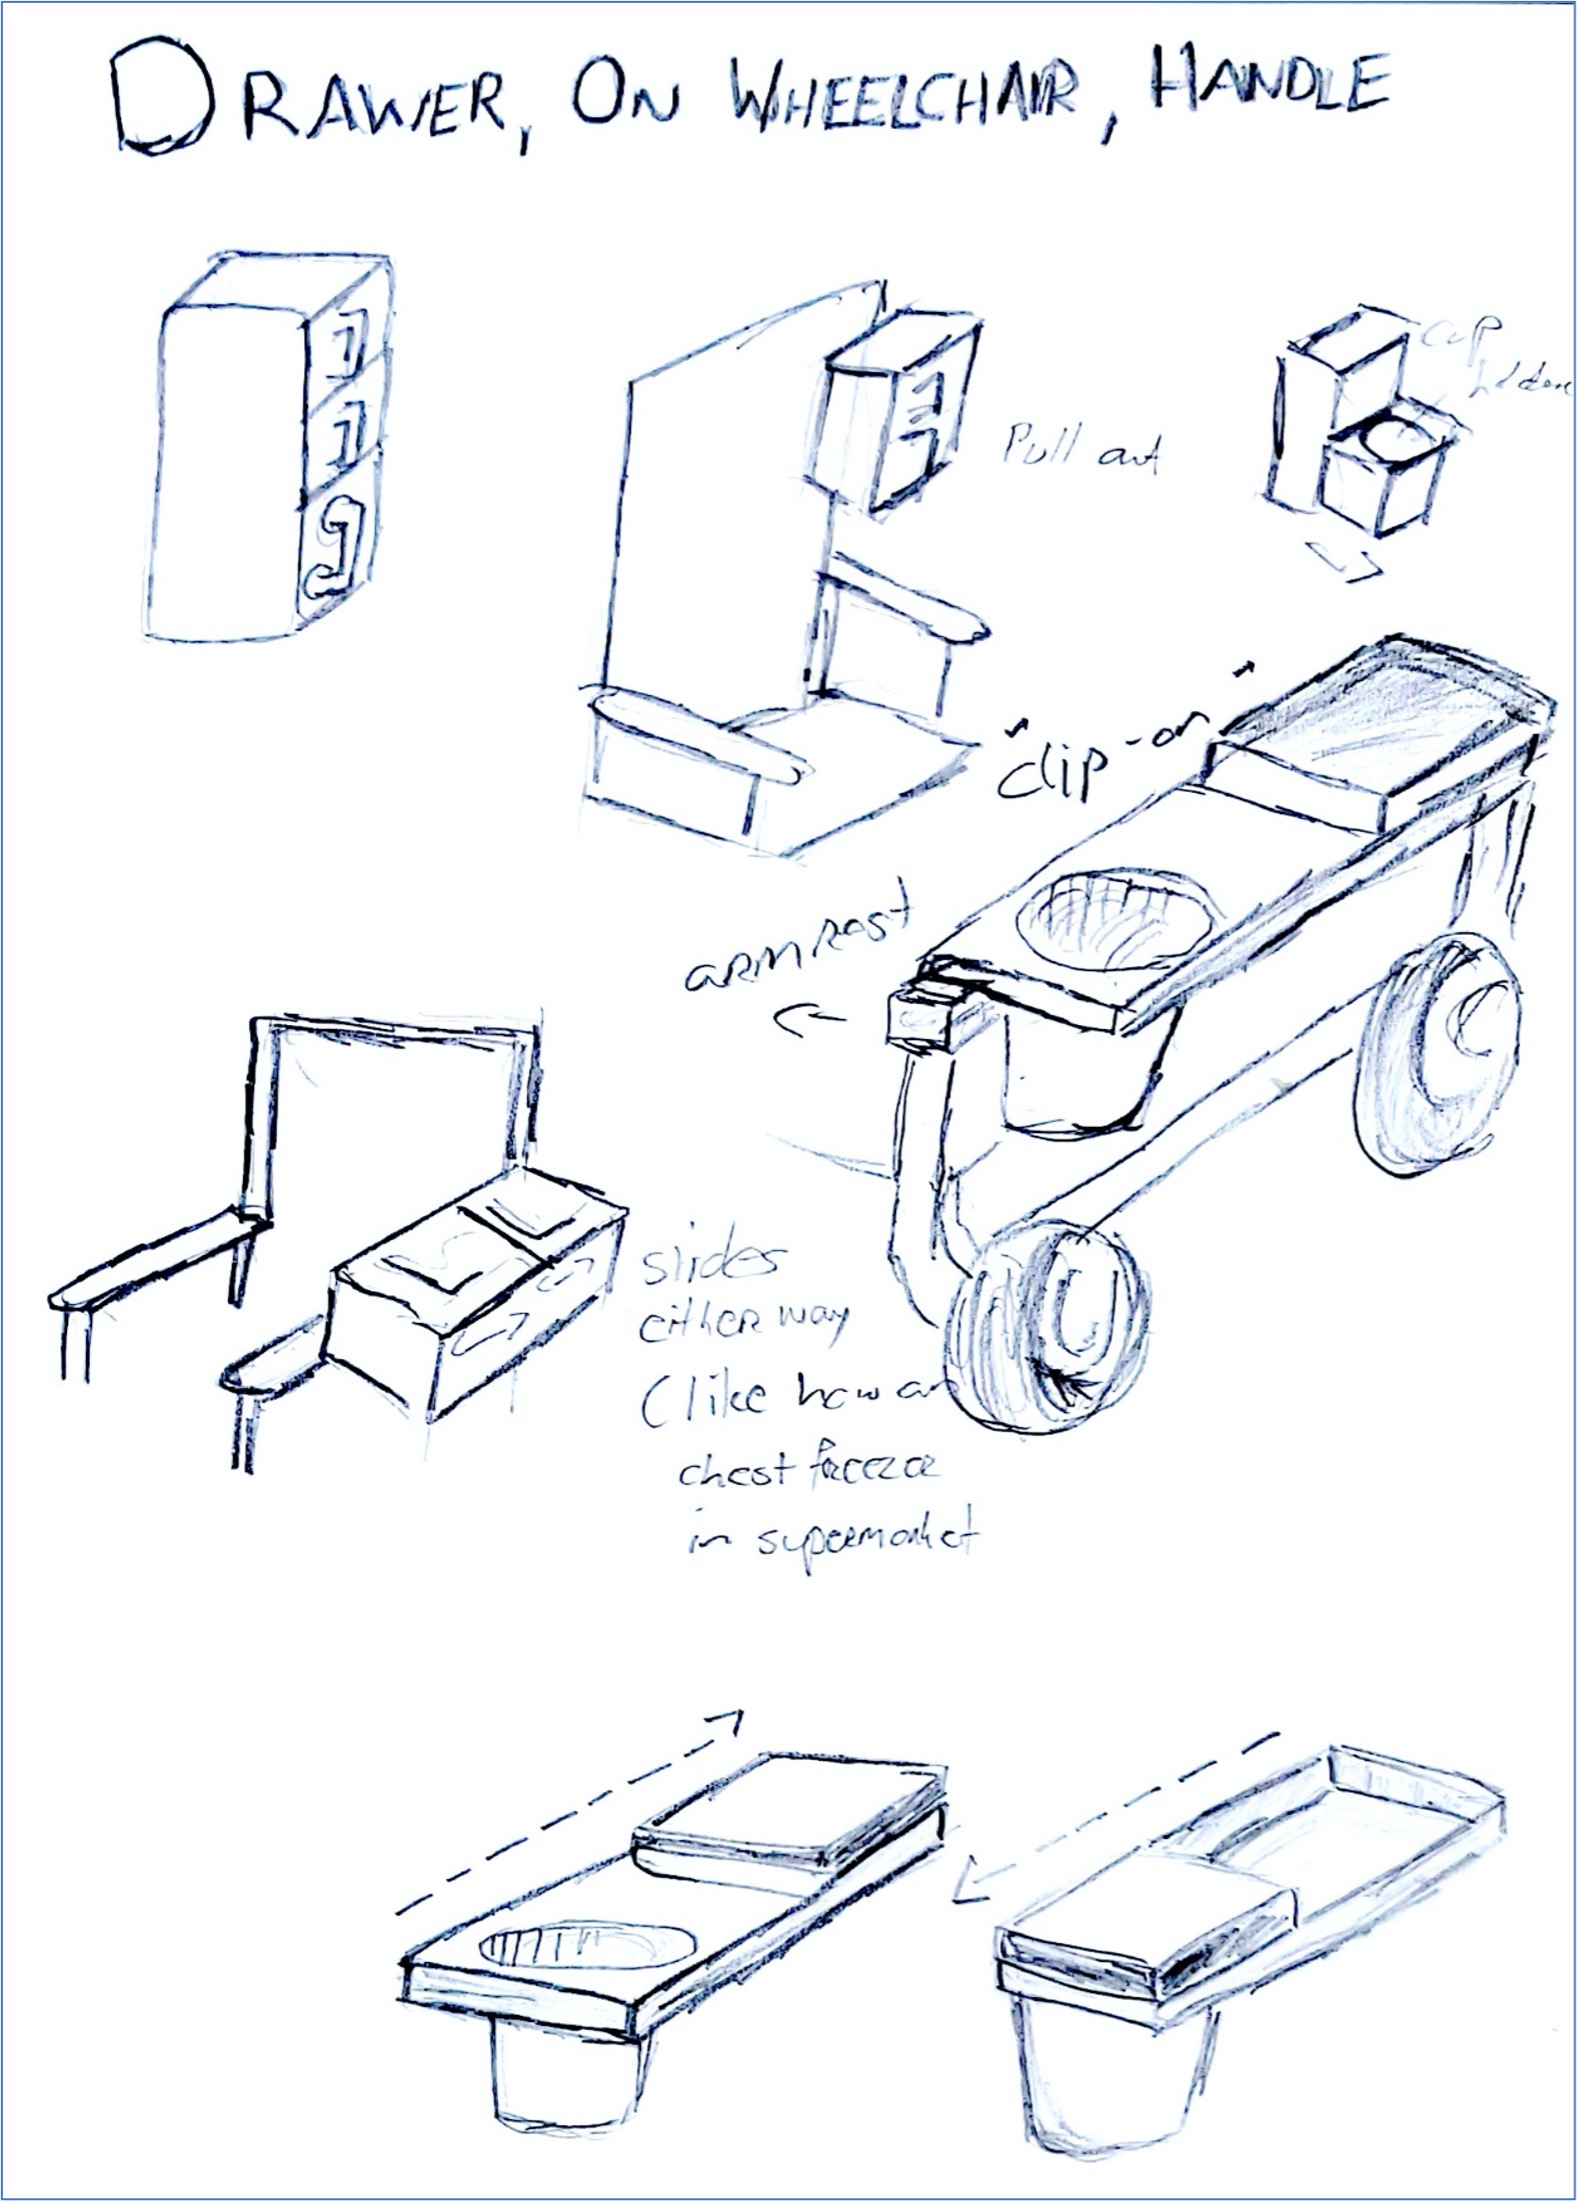 DRAWER, ON WHEELCHAIR, HANDLE
Cup
holder
Pull out
"clip-on"
armrest
slides
either way
(like how a
chest freezer
in supermarket